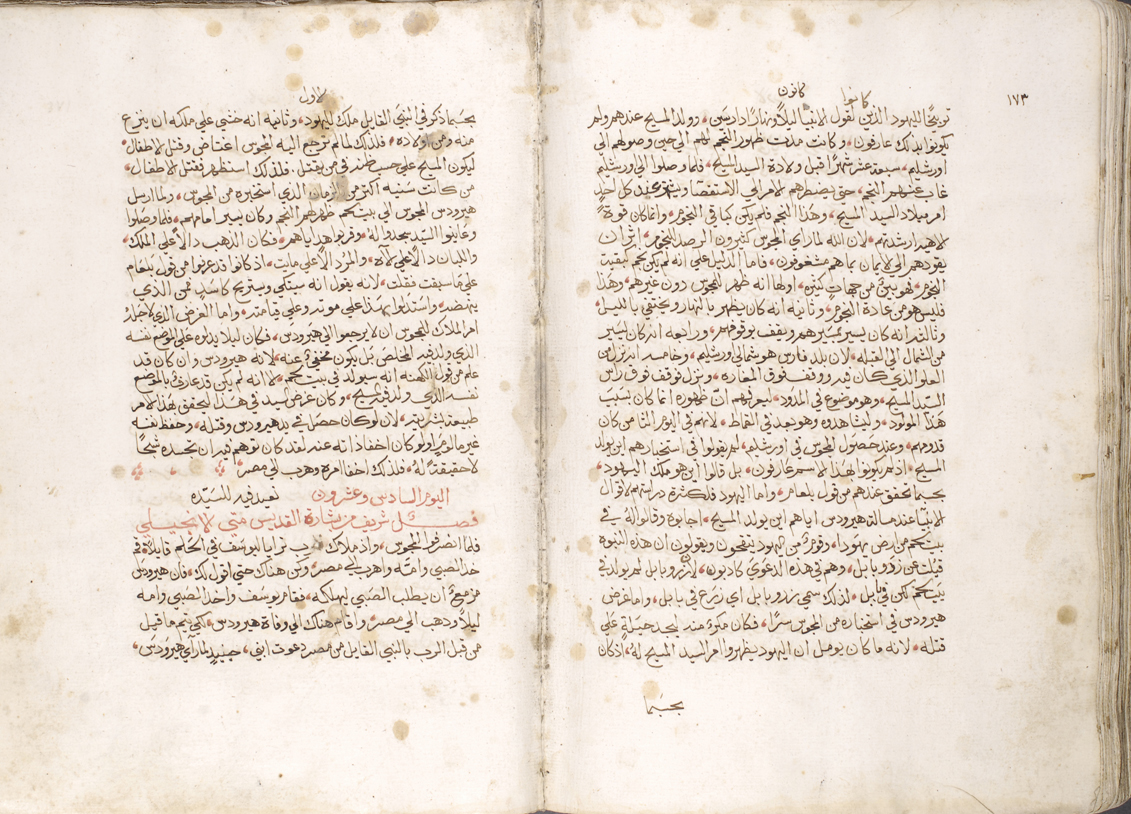 ١٧٣
كانوا
كانون
توبيخًا لليهود الذين لقول الانبيا ليلاً ونهارًا دارسين ٠ وولد المسيح عندهم ولم
يكونوا بذلك عارفون ٠ وكانت مدت ظهور النجم لهم الي حين وصولهم الي
اورشليم ٠ سبعة عشر شهرًا قبل ولادة السيد المسيح ٠ فلما وصلوا الي ورشليم
غاب عنهم النجم ٠ حتي يضطرهم الامر الي الاستقصا ويشهر عند كل احدٍ
امر ميلاد السيد المسيح ٠ وهذا النجم فلم يكن كباقي النجوم ٠ وانما كان قوة
لاهية ارشدتهم ٠ لان الله لما راي المجوس كثيرون الرصد للنجوم ٠ اثر ان
يقودهم الي الايمان بما هم مشغوفون ٠ فاما الدليل علي انه لم يكن نجم كبقيت
النجوم ٠ فهو بيّن من جهاتٍ كثيره ٠ اولها انه ظهر للمجوس دون غيرهم ٠ وهذا
فليس هو من عادة النجوم ٠ وثانيه انه كان يظهر بالنهار ويختفي بالليل ٠
وثالثه انه كان يسير بسيرهم ويقف بوقوفهم ٠ ورابعه انه كان يسير
من الشمال الي القبله ٠ لان بلد فارس هو شمالي ورشليم ٠ وخامسه انه نزل من
العلو الذي كان فيه ووقف فوق المغاره ٠ ونزل فوقف فوق راس
السيد المسيح ٠ وهو موضوع في المدود ٠ ليعرفهم ان ظهوره انما كان بسبب
هذا المولود ٠ وليشاهدوه وهو بعد في القماط ٠ لانهم في اليوم الثامن كان
قدومهم ٠ وعند حصول المجوس في اورشليم ٠ لم يقولوا في استخبارهم اين يولد
المسيح ٠ اذ لم يكونوا لهذا الاسم عارفون ٠ بل قالوا اين هو ملك اليهود ٠
بحسبما تحقق عندهم من قول بلعام ٠ واما اليهود فلكثرة دراستهم لاقوال
الانبيا عند مسالة هيرودس اياهم اين يولد المسيح ٠ اجابوه وقالوا له في
بيت لحم من ارض يهودا ٠ وقومٌ من اليهود يتقحون ويقولون ان هذه النبوه
قيلت عن زروبابل ٠ وهم في هذه الدعوي كادبون ٠ لان زروبابل لم يولد في
بيت لحم لكن في بابل ٠ لذلك سمي زروبابل اي زرع في بابل ٠ واما غرض
هيرودس في استخباره من المجوس سرًا ٠ فكان مكرًا منه ليجد حيلةً علي
قتله ٠ لانه ما كان يومل ان اليهود يظهروا امر السيد المسيح له ٠ اذ كان
بحسبما
الاول
بحسبما ذكر في النبي القايل ملك اليهود ٠ وثانيه انه خشي علي ملكه ان ينزع
منه ومن اولاده ٠ فلذلك لما لم ترجع اليه المجوس اغتاض وقتل الاطفال
ليكون المسيح علي حسب ظنه في من يقتل ٠ فلذلك استظهر فقتل الاطفال ٠
من كانت سنيه اكثر من الزمان الذي استخبره من المجوس ٠ ولما ارسل
هيرودس المجوس الي بيت لحم ظهر لهم النجم وكان يسير امامهم ٠ فلما وصلوا
وعاينوا السيد سجدوا له ٠ وقربوا هداياهم ٠ فكان الذهب دالاً علي الملك ٠
واللبان دالاً علي لاه ٠ والمر دالاً علي مايت ٠ اذ كانوا قد عرفوا من قول بلعام
علي ما سبقت فقلت ٠ لانه يقول انه سيتكي ويستريح كاسدٍ فمن الذي
ينهضه ٠ واستدلوا بهذا علي موته وعلي قيامته ٠ واما الغرض الذي لاجله
امر الملاك للمجوس ان لا يرجعوا الي هيرودس ٠ فكان ليلا يدلوه علي الموضع نفسه
الذي ولد فيه المخلص بل يكون مخفيٌ عنه ٠ لانه هيرودس وان كان قد
علم من قول الكهنه انه سيولد في بيت لحم ٠ لانه لم يكن قد عارف بالموضع
نفسه الذي ولد فيه المسيح ٠ وكان غرض السيد في هذا لتحقق بهذا الامر
طبيعة بشريته ٠ لان لو كان حصل في يد هيرودس وقتله ٠ وحفظ نفسه
غير مالوم ولو كان اخفا ذاته عند لقد كان توهم فيه ان جسده شبحًا
لا حقيقة له ٠ فلذلك اخفا امره وهرب الي مصر ٠
اليوم السادس وعشرون نعيد فيه للسيّده
فصل شريف من بشارة القديس متي الانجيلي
فلما انصرفوا المجوس ٠ واذ ملاك الرب ترايا ليوسف في الحلم قايلا ٠ قم
خذ الصبي وامّه واهرب الي مصر ٠ وكن هناك حتي اقول لك ٠ فان هيرودس
مزمعٌ ان يطلب الصبي ليهلكه ٠ فقام يوسف واخذ الصبي وامه
ليلاً وذهب الي مصر ٠ واقام هناك الي وفاة هيرودس ٠ لكي يتم ما قيل
من قبل الرب بالنبي القايل من مصر دعوت ابني ٠ حينيذٍ لما راي هيرودس ٠